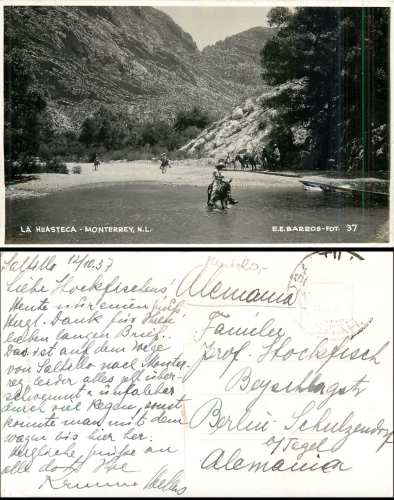 LA HUASTECA - MONTERREY, N.L.
E.E. BARROS - FOT. 37
Saltillo 14/10.37
Liebe Stockfischens!
Heute nur einen
Dank für Ihren
lieben langen Brief.
Das ist auf dem Wege
von Saltillo nach Monter-
rey, leider alles jetzt über-
schwemmt & unfahrbar
durch viel Regen, sonst
konnte man mit dem
wagen bis hier her.
Herzliche Grüsse an
alle dort Ihre
Alemania
Familie
Prof. Stockfisch
Berlin Schulzendorf
b/Tegel
Alemania